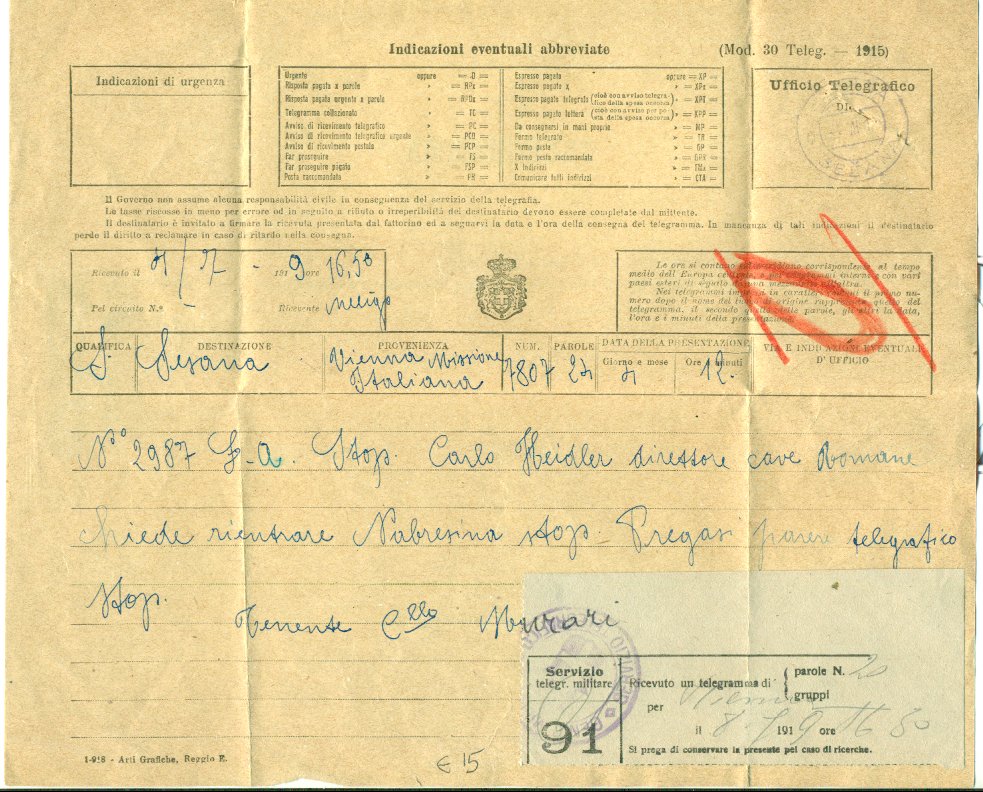 Indicazioni eventuali abbreviate
(Mod. 30 Teleg. — 1915)
Indicazioni di urgenza
Urgente oppure = D =
Risposta pagata x parole » = RPx =
Risposta pagata urgente x parole » = RPDx =
Telegramma collazionato » = TC =
Avviso di ricevimento telegrafico » = PC =
Avviso di ricevimento telegrafico urgente » = PCD =
Avviso di ricevimento postale » = PCP =
Far proseguire » = FS =
Far proseguire pagato » = FSP =
Posta raccomandata » = PR =
Espresso pagato oppure = XP =
Espresso pagato x » = XPx =
Espresso pagato telegrafo (cioè con avviso telegrafico della spesa occorsa) » = XPT =
Espresso pagato lettera (cioè con avviso per posta della spesa occorsa) » = XPP =
Da consegnarsi in mani proprie » = MP =
Fermo telegrafo » = TR =
Fermo posta » = GP =
Fermo posta raccomandata » = GPR =
X indirizzi » = TMx =
Comunicare tutti indirizzi » = CTA =
Ufficio Telegrafico
Di
Il Governo non assume alcuna responsabilità civile in conseguenza del servizio della telegrafia.
Le tasse riscosse in meno per errore od in seguito a rifiuto o irreperibilità del destinatario devono essere completate dal mittente.
Il destinatario è invitato a firmare la ricevuta presentata dal fattorino ed a segnarvi la data e l'ora della consegna del telegramma. In mancanza di tali indicazioni il destinatario
perde il diritto a reclamare in caso di ritardo nella consegna.
Ricevuto il 191 9 ore 16,50
Pel circuito N.º Ricevente
Le ore si contano dal meridiano corrispondente al tempo
medio dell'Europa centrale
Nei telegrammi impressi in caratteri romani il primo numero
dopo il nome del luogo di origine rappresenta quello del
telegramma, il secondo quello delle parole, gli altri la data,
l'ora e i minuti della presentazione.
QUALIFICA DESTINAZIONE PROVENIENZA NUM. PAROLE DATA DELLA PRESENTAZIONE VIA E INDICAZIONI EVENTUALI
Giorno e mese Ore e minuti D'UFFICIO
S. Sesana Vienna Missione Italiana 7807 24 12.
Nº 2987 S.A. Stop. Carlo Heidler direttore cave Romane
chiede rientrare Nabresina stop. Pregasi parere telegrafico
Stop.
Tenente Cllo Murari
Servizio
telegr. militare
91
Ricevuto un telegramma di parole N. 20
gruppi
per Vienna
il 191 9 ore 16 50
Si prega di conservare la presente pel caso di ricerche.
1-918 - Arti Grafiche, Reggio E.
€ 15